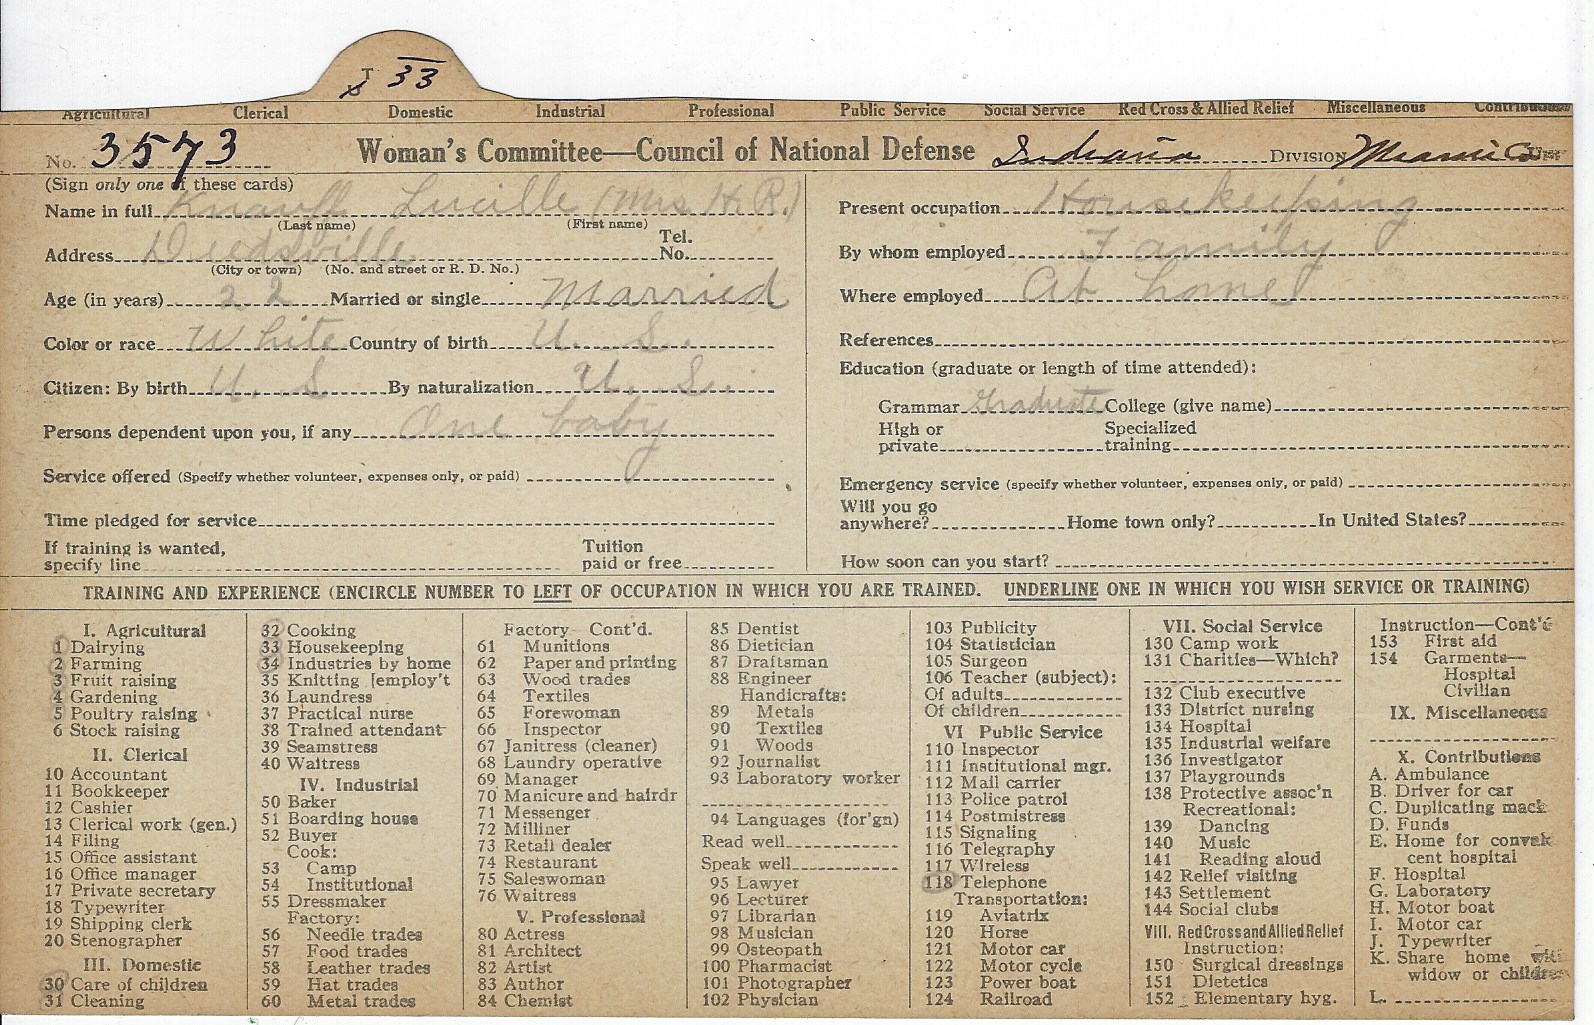 33
Agricultural Clerical Domestic Industrial Professional Public Service Social Service Red Cross & Allied Relief Miscellaneous
No. 3573 Woman's Committee—Council of National Defense Indiana DIVISION Miami Co
(Sign only one of these cards)
Name in full Knauff Lucille (Mrs H. R.)
(Last name) (First name)
Address Deedsville Tel. No.
(City or town) (No. and street or R. D. No.)
Age (in years) 22 Married or single Married
Color or race White Country of birth U. S.
Citizen: By birth U. S By naturalization U. S.
Persons dependent upon you, if any One baby
Service offered (Specify whether volunteer, expenses only, or paid)
Time pledged for service
If training is wanted, specify line Tuition paid or free
Present occupation Housekeeping
By whom employed Family
Where employed At home
References
Education (graduate or length of time attended):
Grammar Graduate College (give name)
High or private Specialized training
Emergency service (specify whether volunteer, expenses only, or paid)
Will you go anywhere? Home town only? In United States?
How soon can you start?
TRAINING AND EXPERIENCE (ENCIRCLE NUMBER TO LEFT OF OCCUPATION IN WHICH YOU ARE TRAINED. UNDERLINE ONE IN WHICH YOU WISH SERVICE OR TRAINING)
I. Agricultural
1 Dairying
2 Farming
3 Fruit raising
4 Gardening
5 Poultry raising
6 Stock raising
II. Clerical
10 Accountant
11 Bookkeeper
12 Cashier
13 Clerical work (gen.)
14 Filing
15 Office assistant
16 Office manager
17 Private secretary
18 Typewriter
19 Shipping clerk
20 Stenographer
III. Domestic
30 Care of children
31 Cleaning
32 Cooking
33 Housekeeping
34 Industries by home
35 Knitting [employ't
36 Laundress
37 Practical nurse
38 Trained attendant
39 Seamstress
40 Waitress
IV. Industrial
50 Baker
51 Boarding house
52 Buyer
Cook:
53 Camp
54 Institutional
55 Dressmaker
Factory:
56 Needle trades
57 Food trades
58 Leather trades
59 Hat trades
60 Metal trades
Factory—Cont'd.
61 Munitions
62 Paper and printing
63 Wood trades
64 Textiles
65 Forewoman
66 Inspector
67 Janitress (cleaner)
68 Laundry operative
69 Manager
70 Manicure and hairdr
71 Messenger
72 Milliner
73 Retail dealer
74 Restaurant
75 Saleswoman
76 Waitress
V. Professional
80 Actress
81 Architect
82 Artist
83 Author
84 Chemist
85 Dentist
86 Dietician
87 Draftsman
88 Engineer
Handicrafts:
89 Metals
90 Textiles
91 Woods
92 Journalist
93 Laboratory worker
94 Languages (for'gn)
Read well
Speak well
95 Lawyer
96 Lecturer
97 Librarian
98 Musician
99 Osteopath
100 Pharmacist
101 Photographer
102 Physician
103 Publicity
104 Statistician
105 Surgeon
106 Teacher (subject):
Of adults
Of children
VI Public Service
110 Inspector
111 Institutional mgr.
112 Mail carrier
113 Police patrol
114 Postmistress
115 Signaling
116 Telegraphy
117 Wireless
118 Telephone
Transportation:
119 Aviatrix
120 Horse
121 Motor car
122 Motor cycle
123 Power boat
124 Railroad
VII. Social Service
130 Camp work
131 Charities—Which?
132 Club executive
133 District nursing
134 Hospital
135 Industrial welfare
136 Investigator
137 Playgrounds
138 Protective assoc'n
Recreational:
139 Dancing
140 Music
141 Reading aloud
142 Relief visiting
143 Settlement
144 Social clubs
VIII. Red Cross and Allied Relief
Instruction:
150 Surgical dressings
151 Dietetics
152 Elementary hyg.
Instruction—Cont'd
153 First aid
154 Garments—
Hospital
Civilian
IX. Miscellaneous
X. Contributions
A. Ambulance
B. Driver for car
C. Duplicating mach
D. Funds
E. Home for conval
cent hospital
F. Hospital
G. Laboratory
H. Motor boat
I. Motor car
J. Typewriter
K. Share home with
widow or children
L.